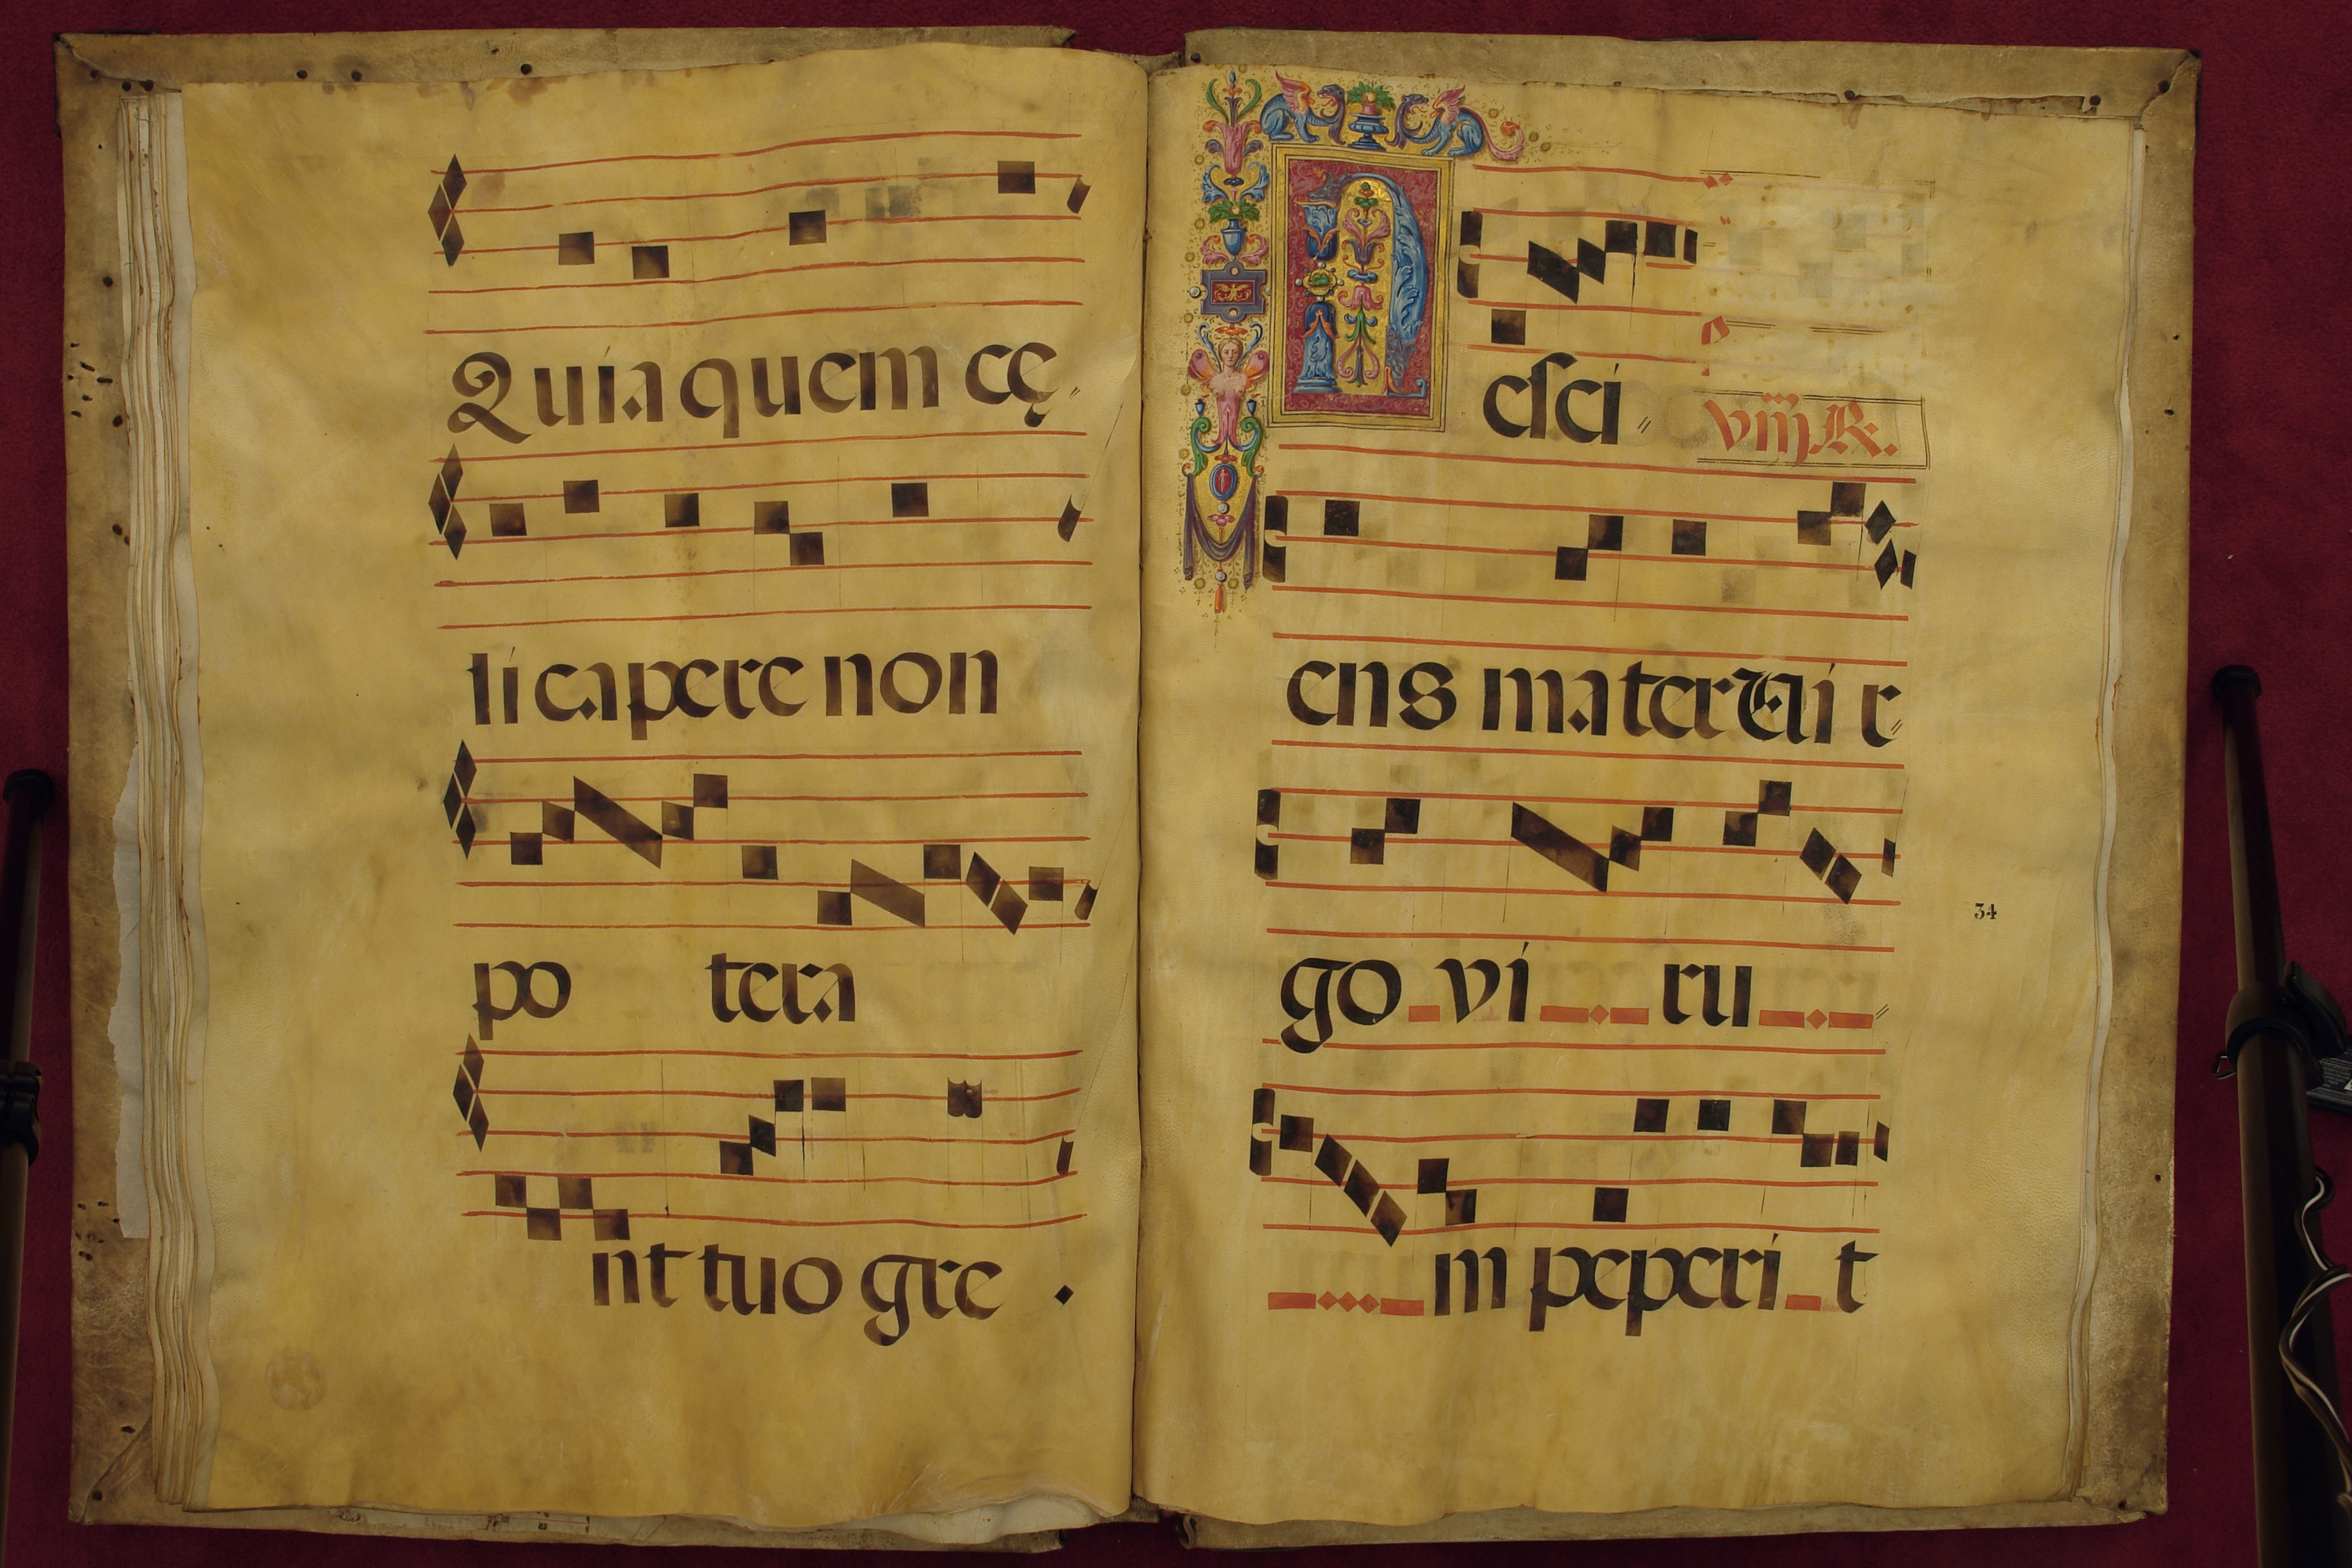 Quia quem cę
li capere non
po tera
nt tuo gre
Nesci
viij R.
ens mater Vir
go vi ru
m peperi t
34